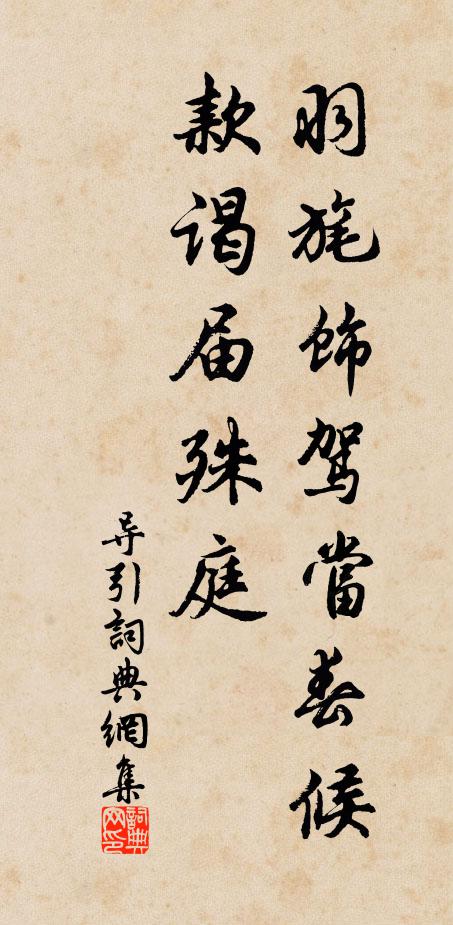 羽旄飾駕當春候
款谒届殊庭
导引詞典網集
詞典网印